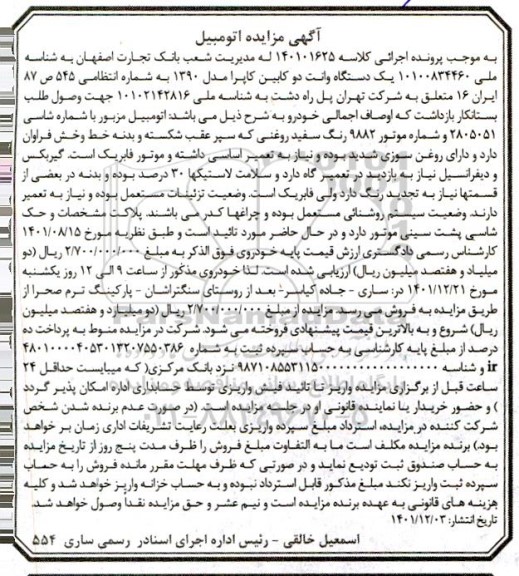 آگهی مزایده اتومبیل
به موجب پرونده اجرائی کلاسه ۱۴۰۱۰۱۶۲۵ له مدیریت شعب بانک تجارت اصفهان به شناسه
ملی ۱۰۱۰۰۸۳۴۴۶۰ یک دستگاه وانت دو کابین کاپرا مدل ۱۳۹۰ به شماره انتظامی ۵۴۵ ص ۸۷
ایران ۱۶ متعلق به شرکت تهران پل راه دشت به شناسه ملی ۱۰۱۰۲۱۴۲۸۱۶ جهت وصول طلب
بستانکار بازداشت که اوصاف اجمالی خودرو به شرح ذیل می باشد: اتومبیل مزبور با شماره شاسی
۲۸۰۵۰۵۱ و شماره موتور ۹۸۸۲ رنگ سفید روغنی که سپر عقب شکسته و بدنه خط وخش فراوان
دارد و دارای روغن سوزی شدید بوده و نیاز به تعمیر اساسی داشته و موتور فابریک است. گیربکس
و دیفرانسیل نیاز به بازدید در تعمیر گاه دارد و سلامت لاستیکها ۳۰ درصد بوده و بدنه در بعضی از
قسمتها نیاز به تجدید رنگ دارد ولی فابریک است. وضعیت تزئینات مستعمل بوده و نیاز به تعمیر
دارند. وضعیت سیستم روشنائی مستعمل بوده و چراغها کدر می باشند. پلاکت مشخصات و حک
شاسی پشت سینی موتور دارد و در حال حاضر مورد تائید است و طبق نظریه مورخ ۱۴۰۱/۰۸/۱۵
کارشناس رسمی دادگستری ارزش قیمت پایه خودروی فوق الذکر به مبلغ ۲/۷۰۰/۰۰۰/۰۰۰ ریال (دو
میلیاد و هفتصد میلیون ریال) ارزیابی شده است. لذا خودروی مذکور از ساعت ۹ الی ۱۲ روز یکشنبه
مورخ ۱۴۰۱/۱۲/۲۱ در: ساری - جاده کیاسر- بعد از روستای سنگتراشان - پارکینگ ترم صحرا از
طریق مزایده به فروش می رسد. مزایده از مبلغ ۲/۷۰۰/۰۰۰/۰۰۰ ریال (دو میلیارد و هفتصد میلیون
ریال) شروع و به بالاترین قیمت پیشنهادی فروخته می شود. شرکت در مزایده منوط به پرداخت ده
درصد از مبلغ پایه کارشناسی به حساب سپرده ثبت به شماره
ir و شناسه نزد بانک مرکزی( که میبایست حداقل ۲۴
ساعت قبل از برگزاری مزایده واریز تا تائید فیش واریزی توسط حسابداری اداره امکان پذیر گردد
) و حضور خریدار یا نماینده قانونی او در جلسه مزایده است. (در صورت عدم برنده شدن شخص
شرکت کننده در مزایده، استرداد مبلغ سپرده واریزی بعلت رعایت تشریفات اداری زمان بر خواهد
بود.) برنده مزایده مکلف است ما به التفاوت مبلغ فروش را ظرف مدت پنج روز از تاریخ مزایده
به حساب صندوق ثبت تودیع نماید و در صورتی که ظرف مهلت مقرر مانده فروش را به حساب
سپرده ثبت واریز نکند مبلغ مذکور قابل استرداد نبوده و به حساب خزانه واریز خواهد شد و کلیه
هزینه های قانونی به عهده برنده مزایده است و نیم عشر و حق مزایده نقدا وصول خواهد شد.
تاریخ انتشار: ۱۴۰۱/۱۲/۰۳
اسمعیل خالقی - رئیس اداره اجرای اسناد رسمی ساری ۵۵۴